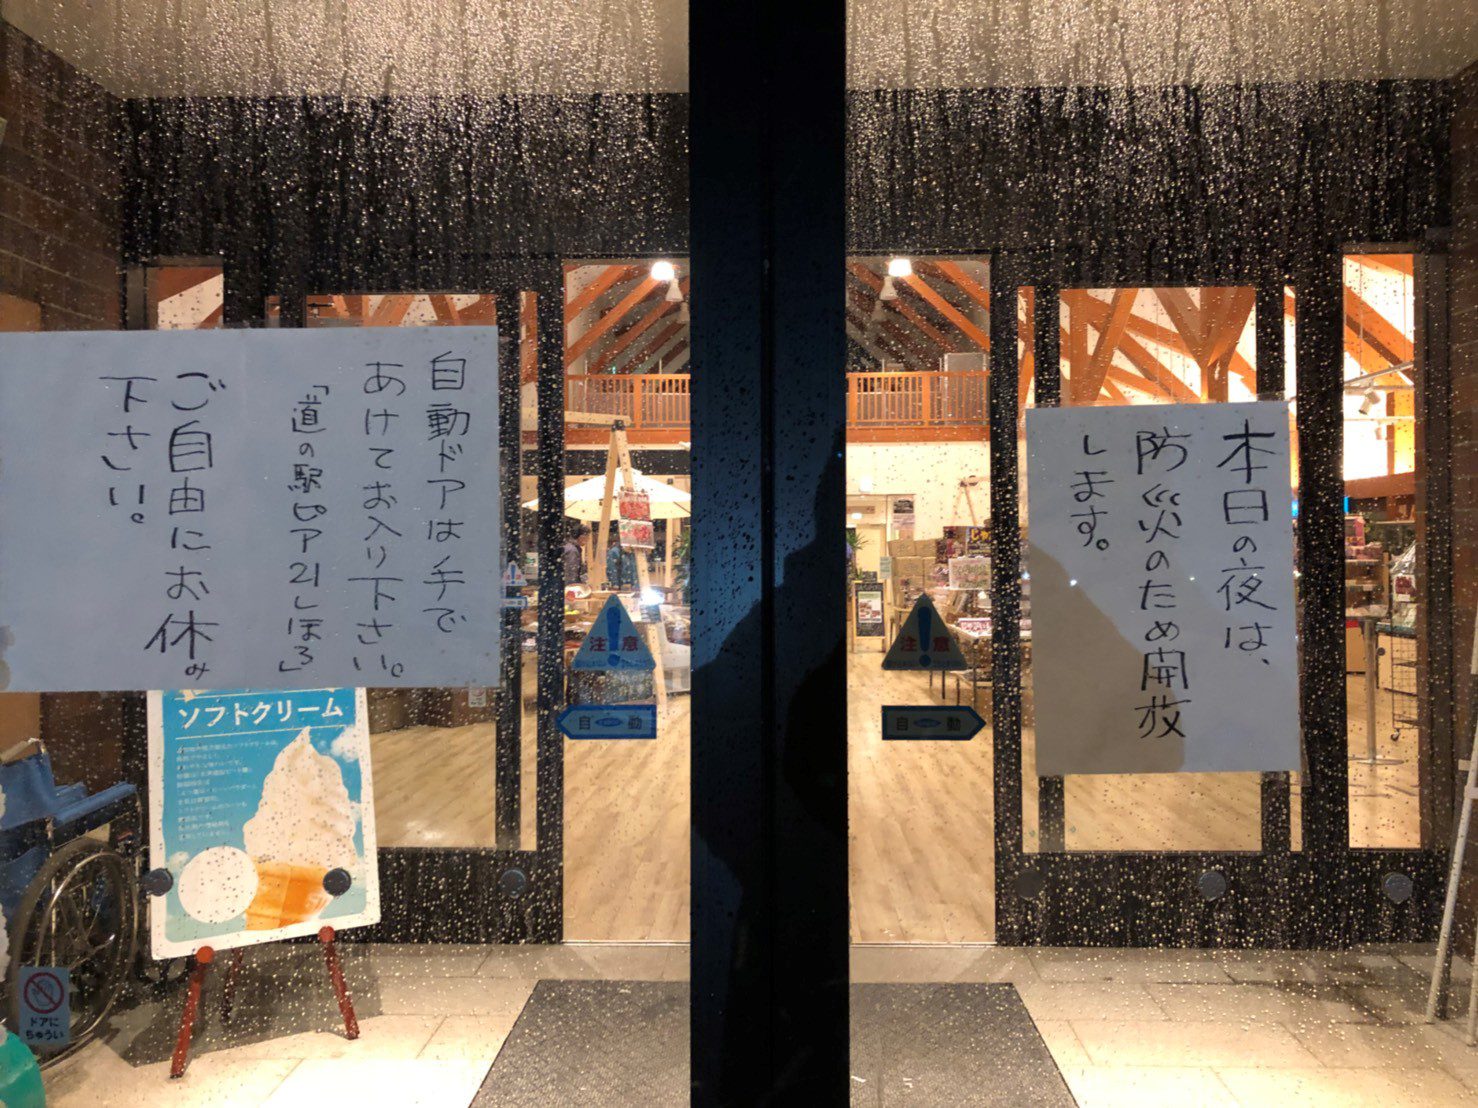 本日の夜は、
防災のため開放
します。
自動ドアは手で
あけてお入り下さい。
「道の駅ピア21しほろ」
ご自由にお休み
下さい。
ソフトクリーム
注意
自動
注意
自動
ドアに
ちゅうい